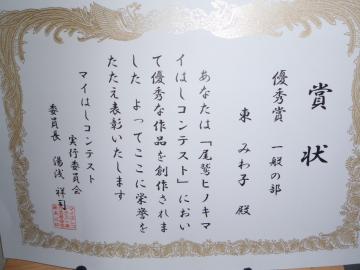 賞状
優秀賞 一般の部
東 みわ子 殿
あなたは「尾鷲ヒノキマ
イはしコンテスト」におい
て優秀な作品を創作されま
した よってここに栄誉を
たたえ表彰いたします
マイはしコンテスト
実行委員会
委員長 湯浅 祥司